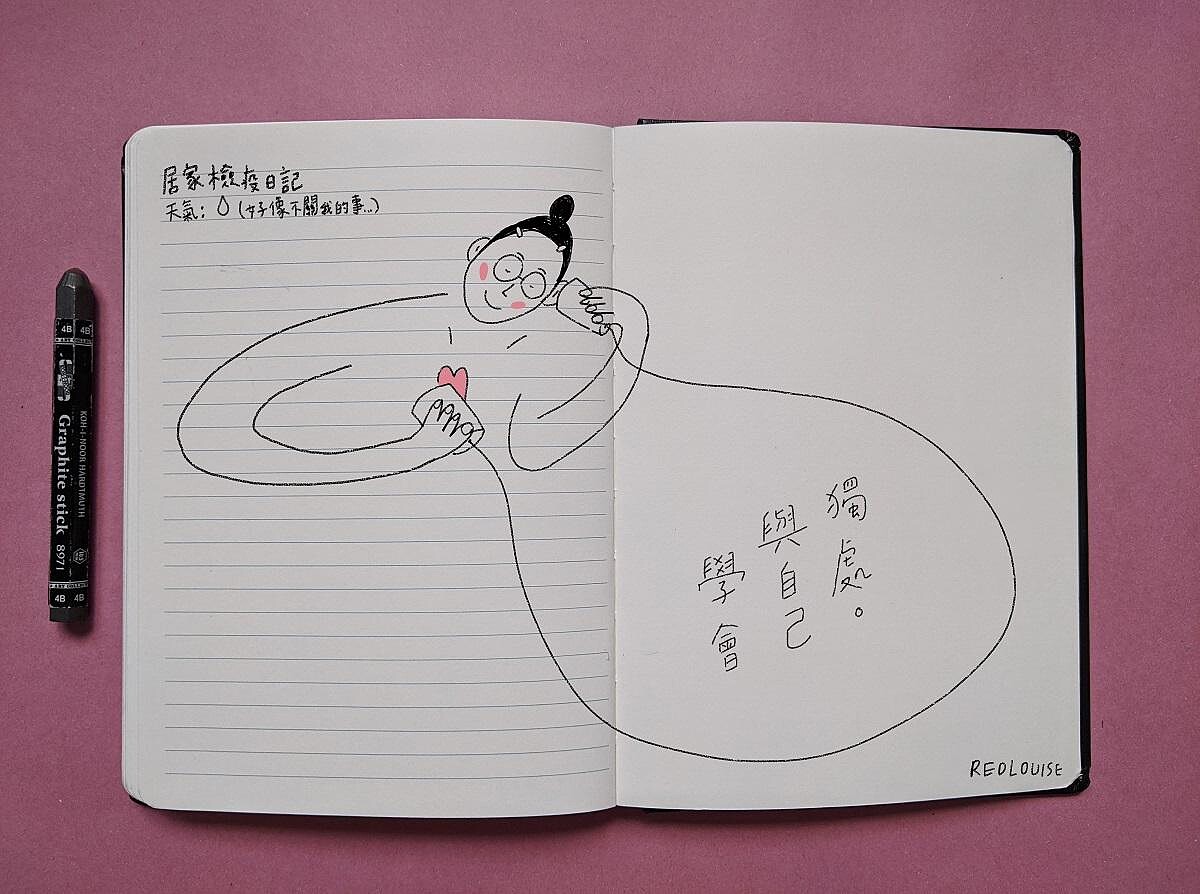 居家檢疫日記
天氣: (好像不關我的事...)
學會
與自己
獨處。
REDLOUISE
4B 4B
KOH-I-NOOR HARDTMUTH
Graphite stick 8971
4B 4B